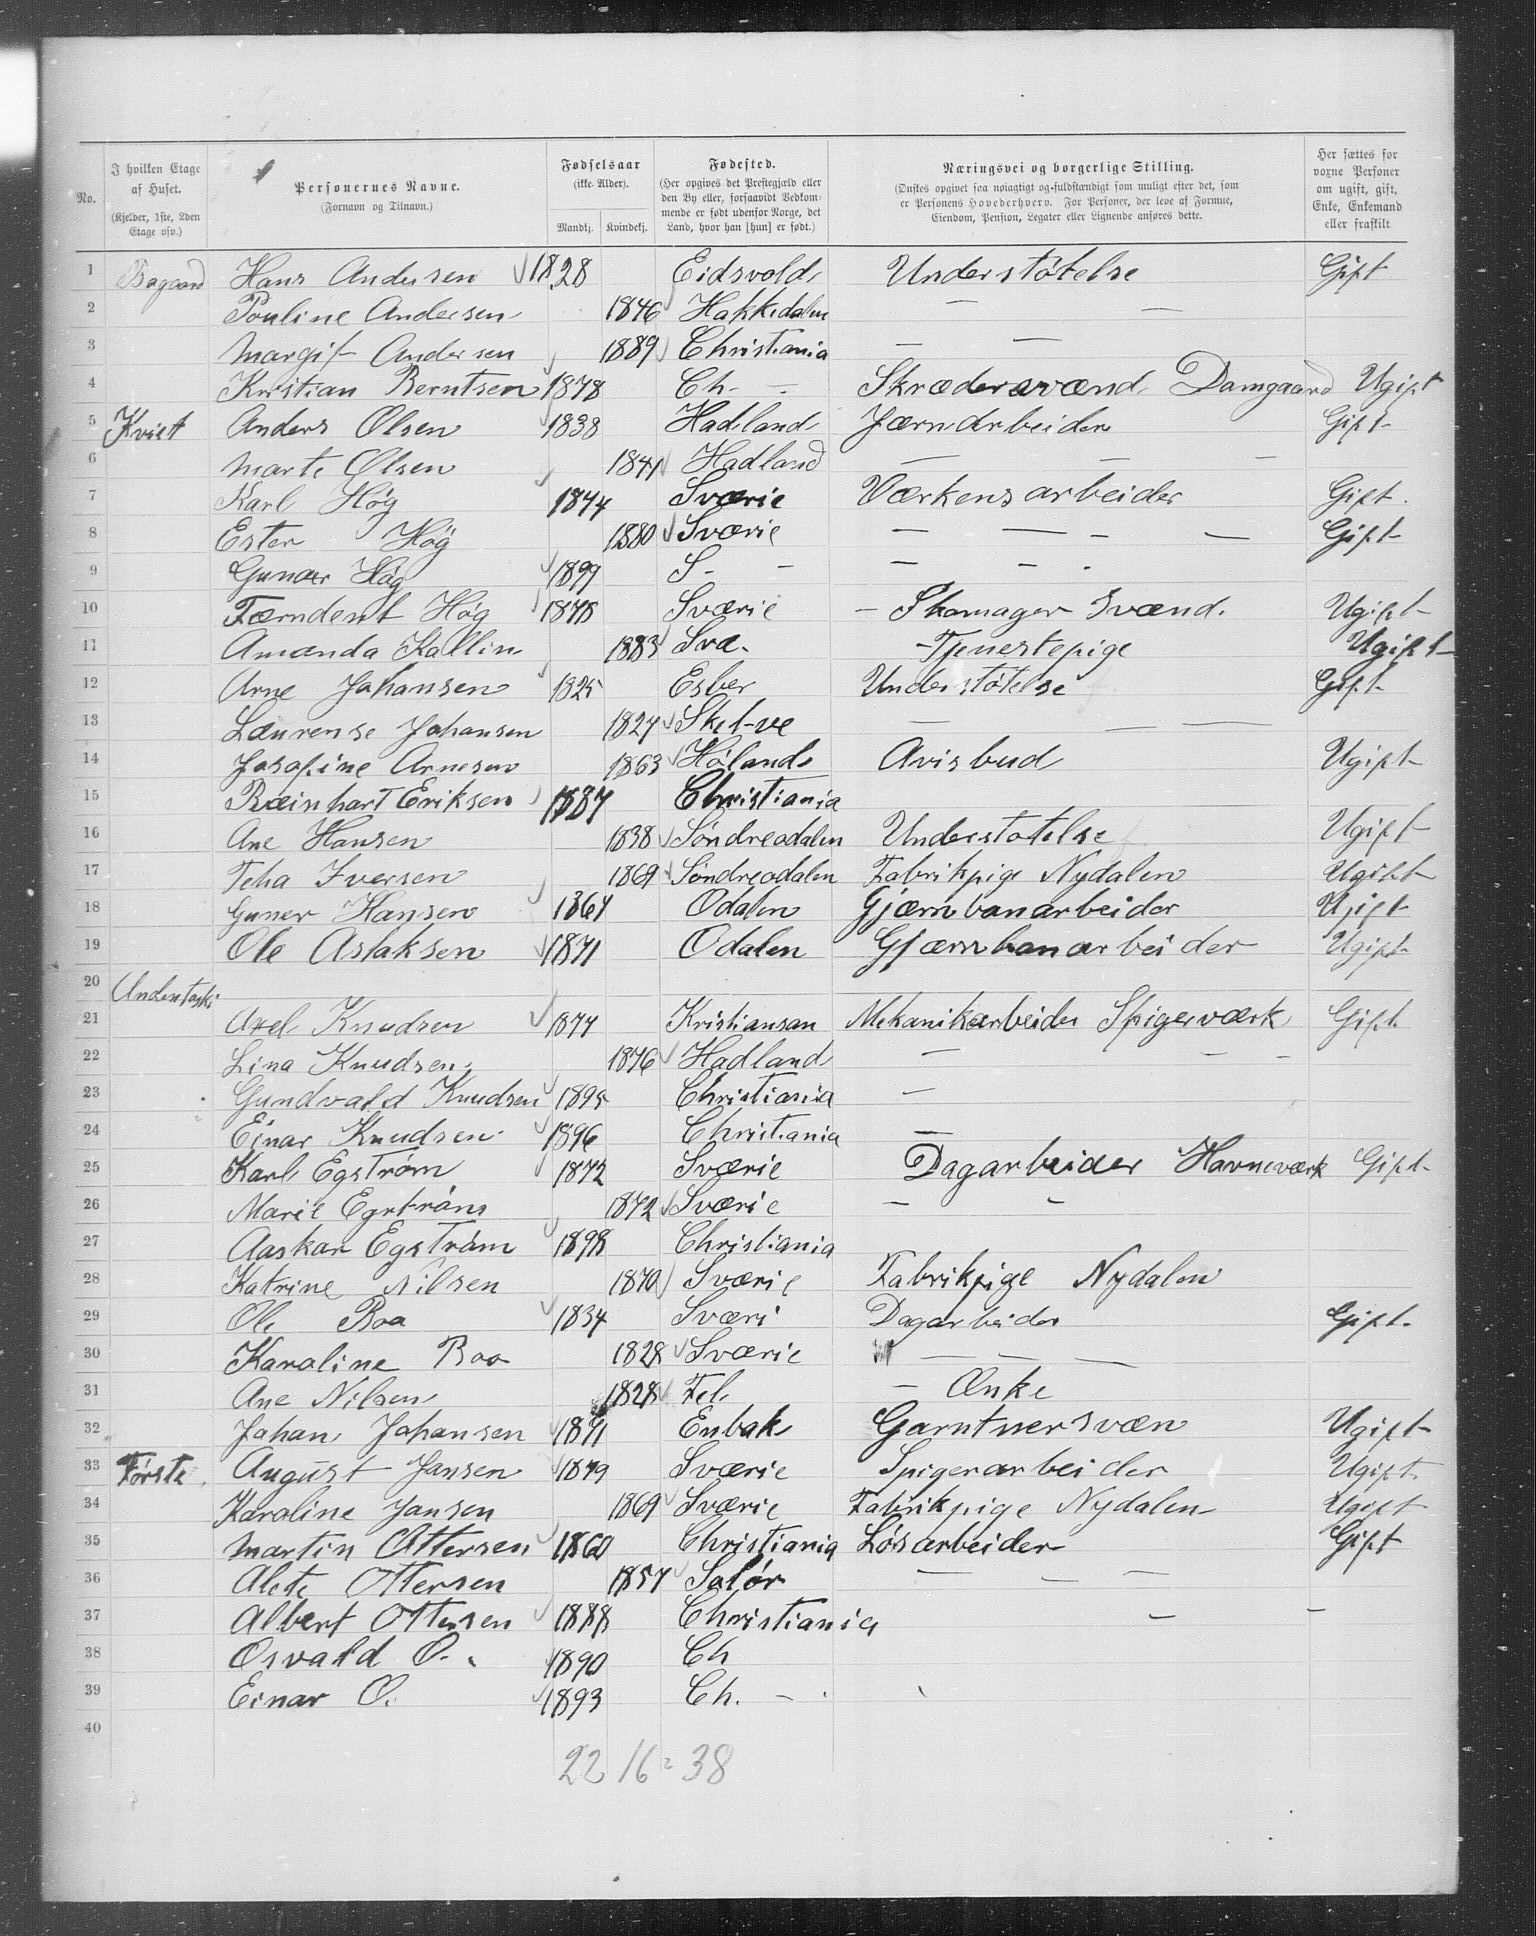 No.
I hvilken Etage af Huset.
(Kjelder, 1ste, 2den Etage osv.)
Personernes Navne.
(Fornavn og Tilnavn.)
Fødselsaar
(ikke Alder).
Mandkj. Kvindekj.
Fødested.
(Her opgives det Prestegjæld eller den By eller, forsaavidt Vedkommende er født udenfor Norge, det Land, hvor han [hun] er født.)
Næringsvei og borgerlige Stilling.
(Ønskes opgivet saa nøiagtigt og fuldstændigt som muligt efter det, som er Personens Hovederhverv. For Personer, der leve af Formue, Eiendom, Pension, Legater eller Lignende anføres dette.
Her sættes for voxne Personer om ugift, gift, Enke, Enkemand eller fraskilt
1 Bagaard Hans Andersen 1828 Eidsvold Understøtelse Gift
2 Pouline Andersen 1846 Hakkedalen — —
3 Margit Andersen 1889 Christiania — —
4 Kristian Berntsen 1878 Ch. — Skrædersvænd Damgaard Ugift
5 Kvist Anders Olsen 1838 Hadland Jærnarbeider Gift
6 Marte Olsen 1841 Hadland — — —
7 Karl Høg 1844 Sværie Værkensarbeider Gift.
8 Ester Høg 1880 Sværie — — - — Gift
9 Gunaer Høg 1899 S- - — — -
10 Færndent Høg 1878 Sværie — Skomager Svænd. Ugift
11 Amanda Kallin 1883 Sva. - Tjenestepige Ugift
12 Arne Johansen 1825 Esber Understøtelse Gift
13 Laurense Johansen 1824 Sket-ve — — —
14 Josofine Arnesen 1863 Høland Avisbud Ugift
15 Ræinhart Eriksen 1887 Christiania
16 Ane Hansen 1838 Søndreodalen Understøtelse Ugift
17 Teha Iversen 1869 Søndreodalen Fabrikpige Nydalen Ugift
18 Guner Hansen 1867 Odalen Gjærnbanarbeider Ugift
19 Ole Aslaksen 1871 Odalen Gjærnbanarbeider Ugift
20
Andenetaski
21 Axel Knudsen 1874 Kristiansan Mekanikarbeider Spigerværk Gift
22 Lina Knudsen 1876 Hadland — - -
23 Gundvald Knudsen 1895 Christiania —
24 Einar Knudsen 1896 Christiania —
25 Karl Egstrøm 1872 Sværie Dagarbeider Havneværk Gift
26 Marie Egstrøm 1872 Sværie — -
27 Aaskar Egstrøm 1898 Christiania
28 Katrine Nilsen 1870 Sværie Fabrikpige Nydalen
29 Ole Boa 1834 Sværi Dagarbeider Gift.
30 Karaline Boa 1828 Sværie — — —
31 Ane Nilsen 1828 Fet — Ænke
32 Johan Johansen 1871 Enbak Garntnersvæn Ugift
33 Første August Jansen 1879 Sværie Spigerarbeider Ugift.
34 Karoline Jansen 1869 Sværie Fabrikpige Nydalen Ugift
35 Martin Ottersen 1860 Christiania Løsarbeider Gift
36 Alete Ottersen 1857 Solør — — —
37 Albert Ottersen 1888 Christiania — —
38 Osvald O. 1890 Ch
39 Einar O. 1893 Ch. -
40
22 16 = 38